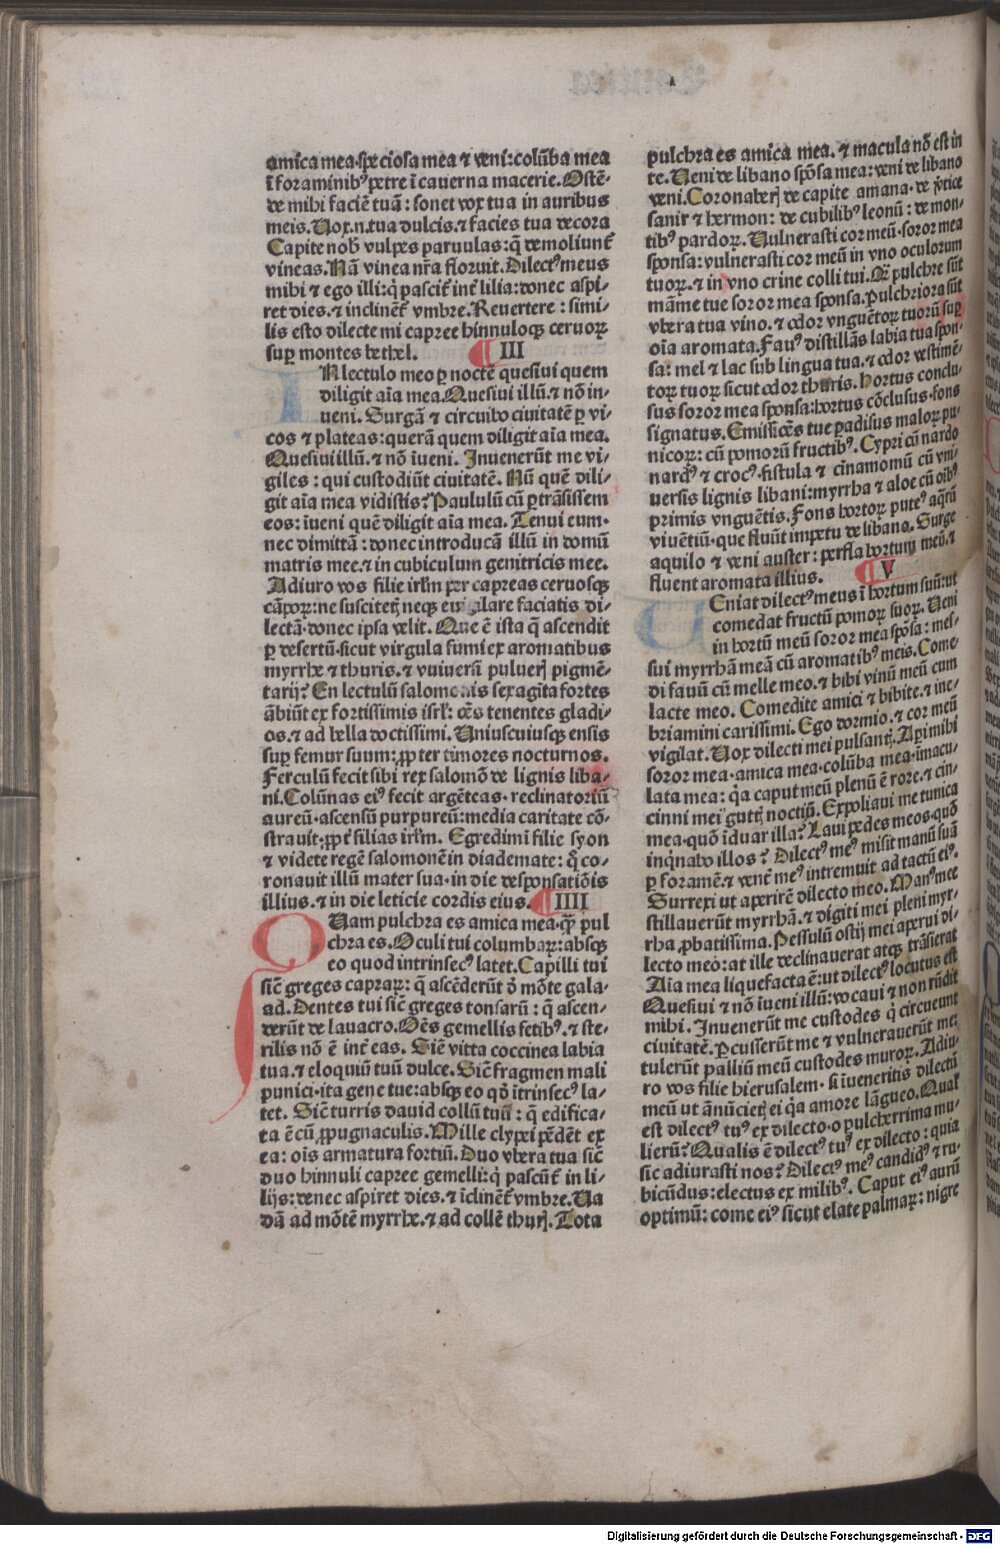 amica mea·speciosa mea ⁊ veni:colūba mea
ī foraminibꝰ petre ī cauerna macerie.Ostē⸗
de mihi faciē tuā: sonet vox tua in auribus
meis.Vox.n.tua dulcis.⁊ facies tua decora
Capite nob̄ vulpes paruulas:q̄ demoliunt᷑
vineas.Nā vinea nr̄a floruit.Dilectꝰ meus
mihi ⁊ ego illi:q̇ pascit᷑ int᷑ lilia:donec aspi⸗
ret dies.⁊ inclinēt᷑ vmbre.Reuertere: simi⸗
lis esto dilecte mi capree hinnuloqꝫ ceruoꝝ
suꝑ montes bethel. III
IN lectulo meo ꝑ nocte quesiui quem
diligit aīa mea.Quesiui illū.⁊ nō in⸗
ueni. Surgā ⁊ circuibo ciuitatē ꝑ vi⸗
cos ⁊ plateas:querā quem diligit aīa mea.
Quesiui illū.⁊ nō īueni. Inuenerūt me vi⸗
giles: qui custodiūt ciuitatē. Nū quē dili⸗
git aīa mea vidistis? Paululū cū ꝑtrāsissem
eos:īueni quē diligit aīa mea. Tenui eum·
nec dimittā: donec introducā illū in domū
matris mee.⁊ in cubiculum genitricis mee.
Adiuro vos filie irl̄m per capreas ceruosqꝫ
cāpoꝝ:ne suscitetꝭ neqꝫ euigilare faciatis di⸗
lectā·donec ipsa velit. Que ē ista q̄ ascendit
ꝑ desertū·sicut virgula fumi ex aromatibus
myrrhe ⁊ thuris.⁊ vniuersi pulueꝝ pigmē⸗
tarij? En lectulū salomonis sexaginta fortes
ābiūt ex fortissimis isrl̄: oēs tenentes gladi⸗
os.⁊ ad bella doctissimi. Uniuscuiusqꝫ ensis
suꝑ femur suum:ꝓpter timores nocturnos.
Ferculū fecit sibi rex salomō de lignis liba⸗
ni.Colūnas eiꝰ fecit argēteas· reclinatoriū
aureū·ascensū purpureū:media caritate cō⸗
strauit:ꝓpt᷑ filias irl̄m. Egredimī filie syon
⁊ videte regē salomonē in diademate: q̄ co⸗
ronauit illū mater sua·in die desponsatiōis
illius.⁊ in die leticie cordis eius. IIII
QUam pulchra es amica mea·q̄ꝫ pul
chra es.Oculi tui columbaꝝ:absqꝫ
eo quod intrinsecꝰ latet.Capilli tui
sic̄ greges capraꝝ: q̄ ascēderūt d̄ mōte gala⸗
ad.Dentes tui sic̄ greges tonsarū: q̄ ascen⸗
derūt de lauacro.Oēs gemellis fetibꝰ.⁊ ste⸗
rilis nō ē int᷑ eas. Sic̄ vitta coccinea labia
tua.⁊ eloquiū tuū dulce.Sic̄ fragmen mali
punici·ita gene tue:absqꝫ eo qd̄ ītrinsecꝰ la⸗
tet. Sic̄ turris dauid collū tuū: q̄ edifica⸗
ta ē cū ꝓpugnaculis.Mille clypei pēdēt ex
ea: oīs armatura fortiū.Duo vbera tua sic̄
duo hinnuli capree gemelli:q̇ pascūt᷑ in li⸗
lijs:donec aspiret dies.⁊ īclinēt᷑ vmbre.Ua
dā ad mōtē myrrhe.⁊ ad collē thurꝭ.Tota
pulchra es amica mea. ⁊ macula nō est in
te.Ueni de libano spōsa mea:veni de libano
veni.Coronaberꝭ de capite amana· de v̄tice
sanir ⁊ hermon: de cubilibꝰ leonū: de mon⸗
tibꝰ pardoꝝ. Vulnerasti cor meū·soror mea
sponsa:vulnerasti cor meū in vno oculorum
tuoꝝ.⁊ in vno crine colli tui.Q̄ꝫ pulchre sūt
māme tue soror mea sponsa.Pulchriora sūt
vbera tua vino. ⁊ odor vnguētoꝝ tuorū suꝑ
oīa aromata.Fauꝰ distillās labia tua spon⸗
sa: mel ⁊ lac sub lingua tua.⁊ odor vestimē⸗
toꝝ tuoꝝ sicut odor thuris.Hortus conclu⸗
sus soror mea sponsa:hortus cōclusus·fons
signatus. Emissiōes tue padisus maloꝝ pu⸗
nicoꝝ: cū pomorū fructibꝰ. Cypri cū nardo
nardꝰ ⁊ crocꝰ·fistula ⁊ cīnamomū cū vni⸗
uersis lignis libani:myrrha ⁊ aloe cū oībꝰ
primis vnguētis. Fons hortoꝝ puteꝰ aq̄rū
viuētiū·que fluūt impetu de libano. Surge
aquilo ⁊ veni auster: perfla hortum meū.⁊
fluent aromata illius. V
UEniat dilectꝰ meus ī hortum suū:ut
comedat fructū pomoꝝ suoꝝ. Veni
in hortū meū soror mea spōsa: mes⸗
sui myrrhā meā cū aromatibꝰ meis.Come⸗
di fauū cū melle meo.⁊ bibi vinū meū cum
lacte meo. Comedite amici ⁊ bibite.⁊ ine⸗
briamini carissimi. Ego dormio.⁊ cor meū
vigilat.Vox dilecti mei pulsantꝭ.Aꝑi mihi
soror mea·amica mea·colūba mea·īmacu⸗
lata mea: q̇a caput meū plenū ē rore.⁊ cin⸗
cinni mei guttꝭ noctiū. Expoliaui me tunica
mea·quō īduar illa? Laui pedes meos·quō
inq̇nabo illos? Dilectꝰ meꝰ misit manū suā
ꝑ foramē.⁊ vent᷑ meꝰ intremuit ad tactū eiꝰ.
Surrexi ut aperirē dilecto meo. Manꝰ mee
stillauerūt myrrhā.⁊ digiti mei pleni myr⸗
rha ꝓbatissima. Pessulū ostij mei aperui di⸗
lecto meo:at ille declinauerat atqꝫ trāsierat
Aīa mea liquefacta ē:ut dilectꝰ locutus est
Quesiui ⁊ nō īueni illū:vocaui ⁊ non rn̄dit
mihi. Inuenerūt me custodes q̇ circueunt
ciuitatē. Ꝑcusserūt me ⁊ vulnerauerūt me:
tulerūt palliū meū custodes muroꝝ. Adiu⸗
ro vos filie hierusalem· si īueneritis dilectū
meū ut ānūcietꝭ ei q̇a amore lāgueo.Qual̄
est dilectꝰ tuꝰ ex dilecto·o pulcherrima mu⸗
lierū? Qualis ē dilectꝰ tuꝰ ex dilecto: quia
sic adiurasti nos? Dilectꝰ meꝰ candidꝰ ⁊ ru⸗
bicūdus:electus ex milibꝰ. Caput eiꝰ aurū
optimū: come eiꝰ sicut elate palmaꝝ: nigre
Digitalisierung gefördert durch die Deutsche Forschungsgemeinschaft - DFG